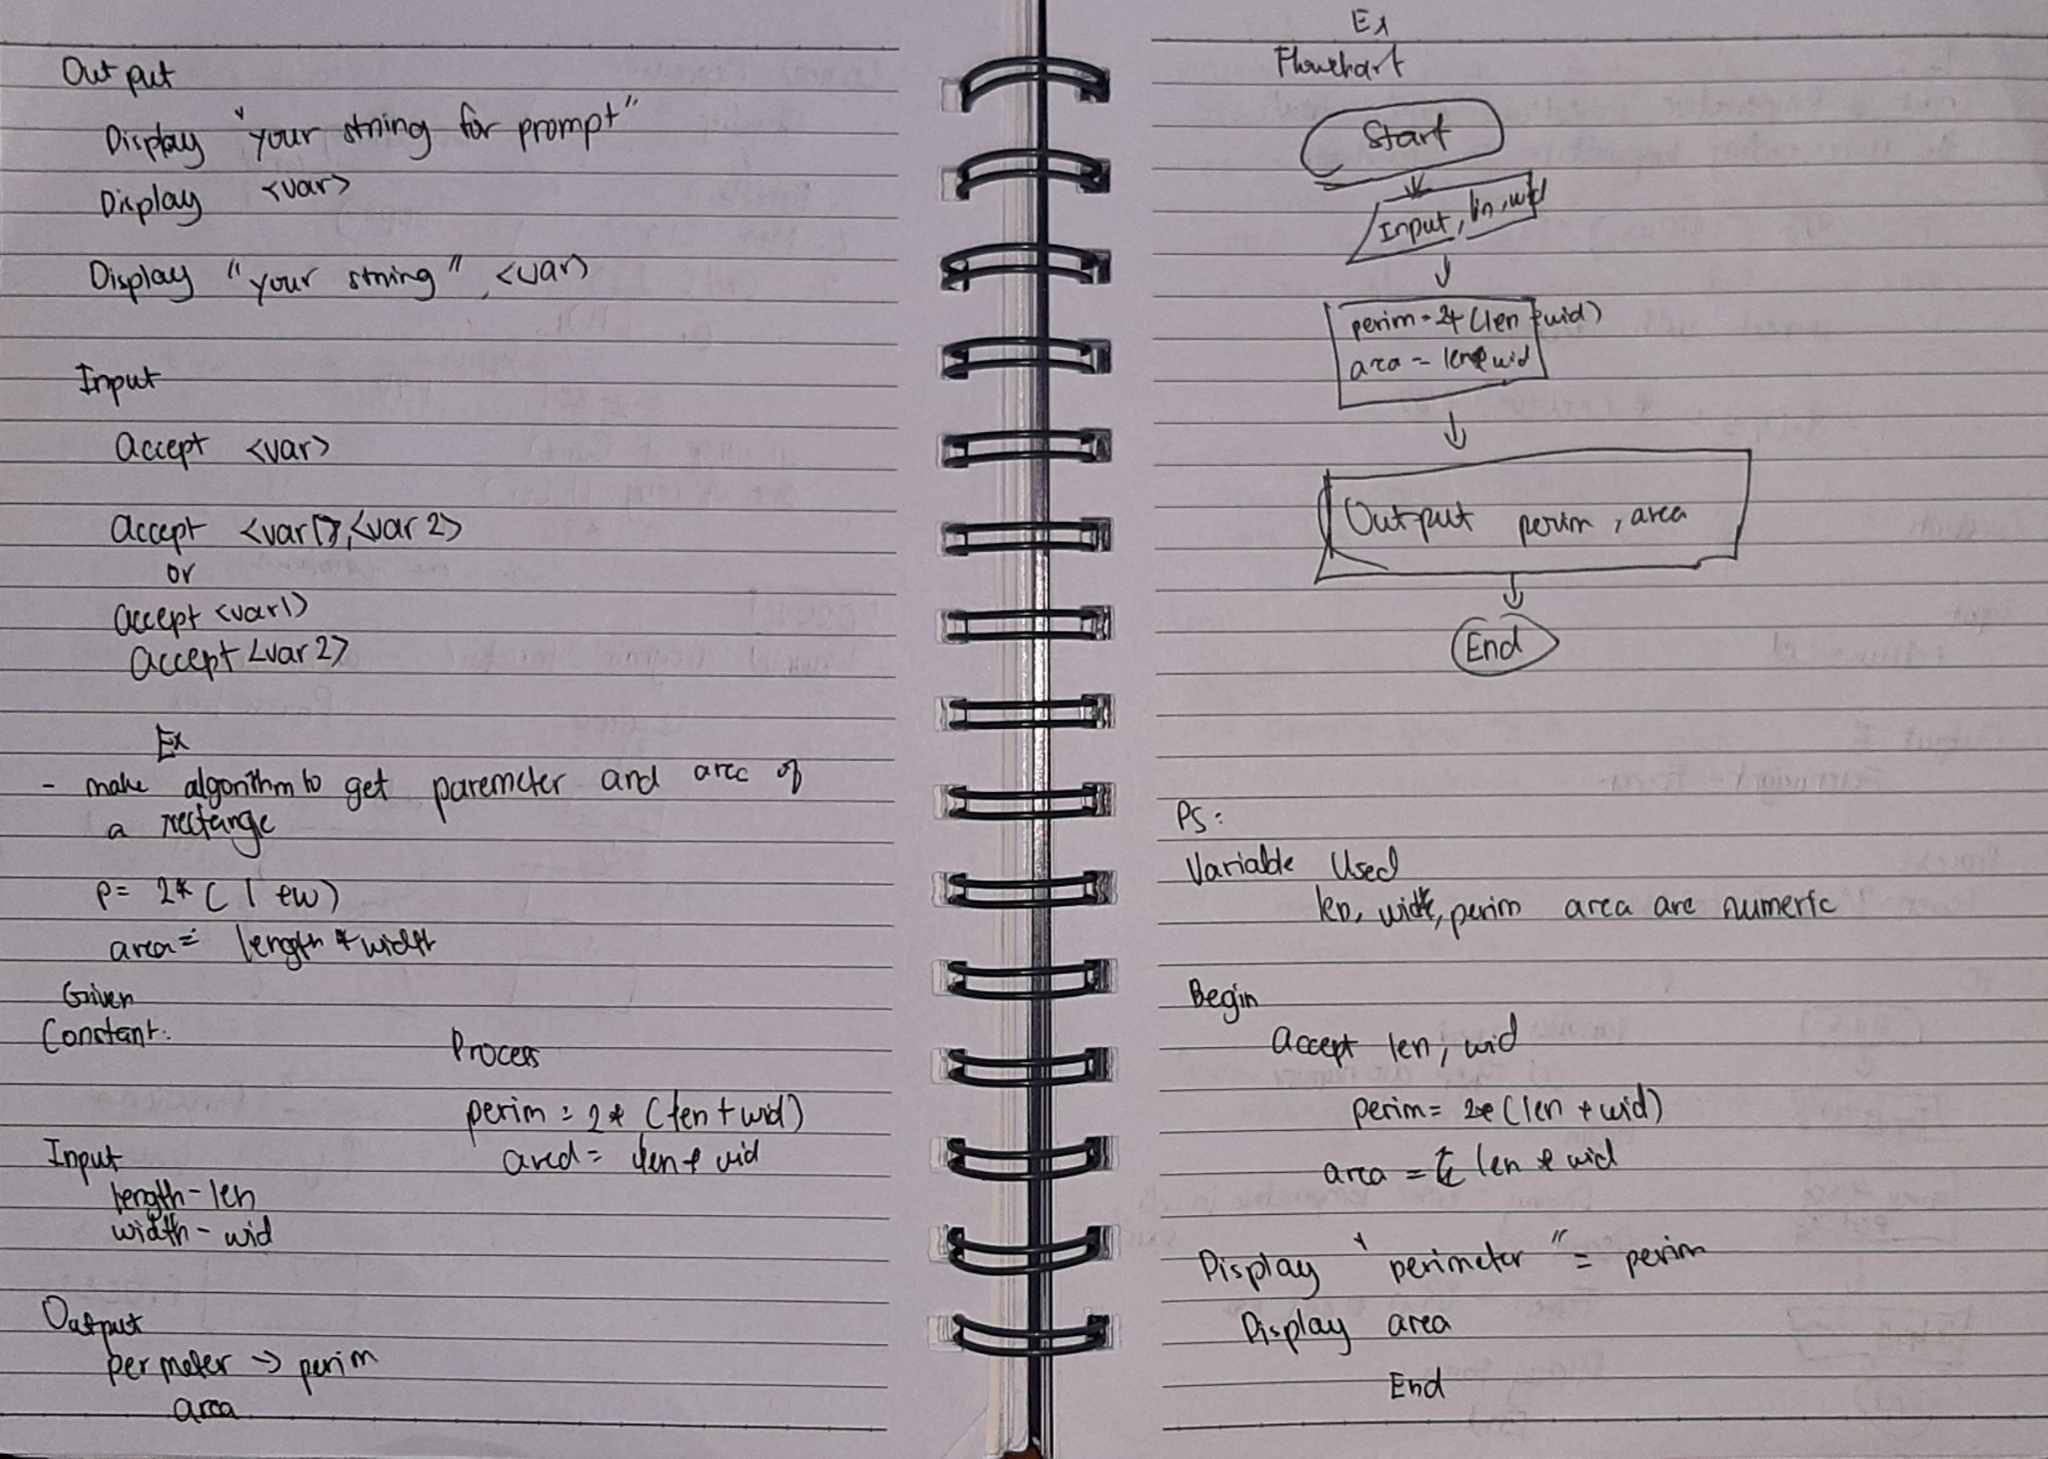 Output
Display "your string for prompt"
Display <var>
Display "your string", <var>
Input
Accept <var>
Accept <var1>, <var 2>
or
Accept <var1>
Accept <var 2>
Ex
- make algorithm to get paremeter and area of
a rectange
P= 2* ( l + w)
area = length * width
Given
Constant:
Process
perim = 2 * (len + wid)
area = len * wid
Input
length - len
width - wid
Output
permeter -> perim
area
Ex
Flowchart
Start
Input, len, wid
perim = 2* (len + wid)
area = len * wid
Output perim, area
End
PS:
Variable Used
len, wid, perim area are numeric
Begin
Accept len, wid
perim = 2* (len + wid)
area = len * wid
Display "perimeter" = perim
Display area
End